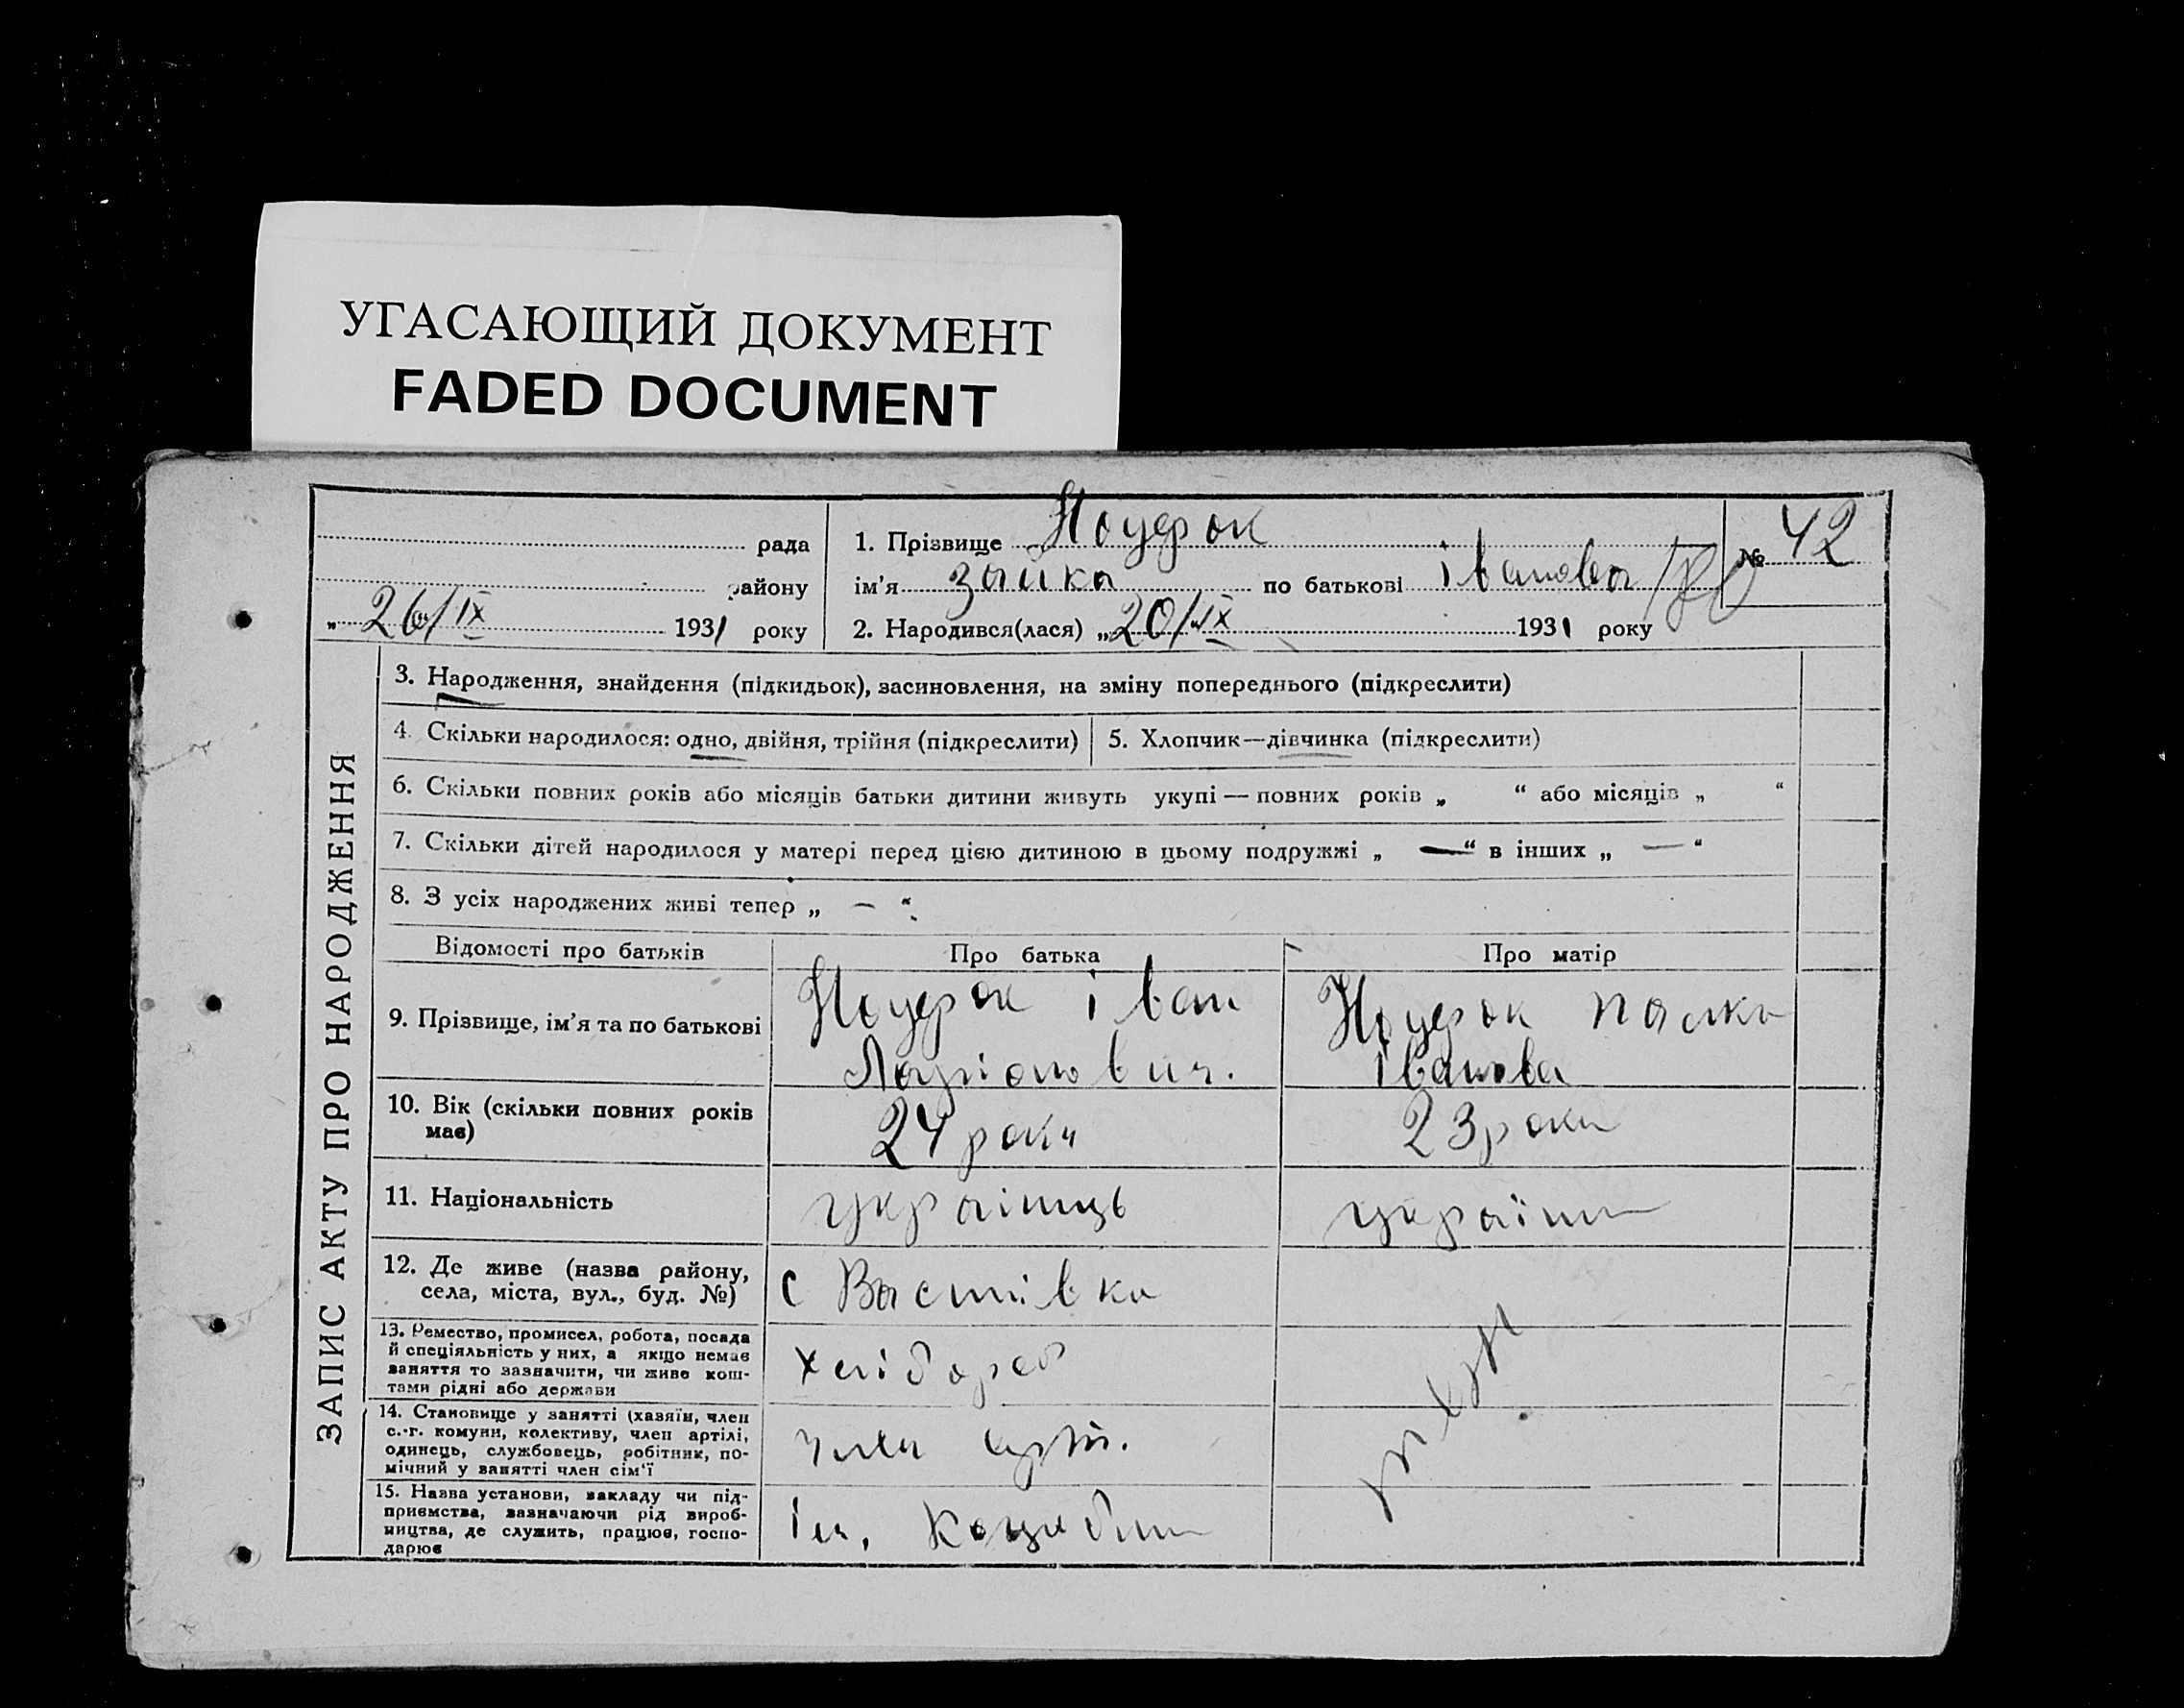 УГАСАЮЩИЙ ДОКУМЕНТ
FADED DOCUMENT
ЗАПИС АКТУ ПРО НАРОДЖЕННЯ
рада
району
„ 26/IX 1931 року
1. Прізвище
ім’я зайка по батькові івановна
№ 42
2. Народився(лася) „20/IX 1931 року
3. Народження, знайдення (підкидьок), засиновлення, на зміну попереднього (підкреслити)
4. Скільки народилося: одно, двійня, трійня (підкреслити)
5. Хлопчик—дівчинка (підкреслити)
6. Скільки повних років або місяців батьки дитини живуть укупі — повних років „ “ або місяців „ “
7. Скільки дітей народилося у матері перед цією дитиною в цьому подружжі „ — “ в інших „ — “
8. З усіх народжених живі тепер „ — “.
Відомості про батьків
Про батька
Про матір
9. Прізвище, ім’я та по батькові
іван
івановна
10. Вік (скільки повних років
має)
24 роки
23 роки
11. Національність
українець
12. Де живе (назва району,
села, міста, вул., буд. №)
с
13. Ремество, промисел, робота, посада
й спеціяльність у них, а якщо немає
заняття то зазначити, чи живе кош-
тами рідні або держави
хлібороб
14. Становище у занятті (хазяїн, член
с.-г. комуни, колективу, член артілі,
одинець, службовець, робітник, по-
мічний у занятті член сім’ї
член
15. Назва установи, закладу чи під-
приємства, зазначаючи рід вироб-
ництва, де служить, працює, госпо-
дарює
ім.